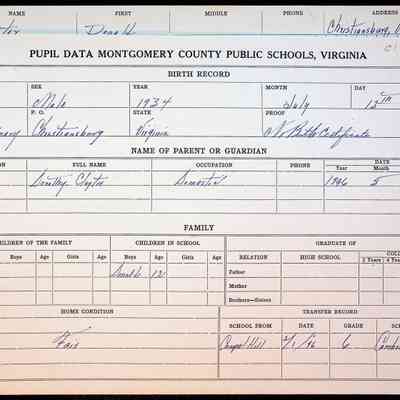 NAME FIRST MIDDLE PHONE ADDRESS
Donald Christiansburg,
PUPIL DATA MONTGOMERY COUNTY PUBLIC SCHOOLS, VIRGINIA
BIRTH RECORD
SEX YEAR MONTH DAY
Male 1934 July 12th
P. O. STATE PROOF
Christiansburg Virginia Birth Certificate
NAME OF PARENT OR GUARDIAN
FULL NAME OCCUPATION PHONE DATE
Year Month
Dorothy Domestic 1946 5
FAMILY
CHILDREN OF THE FAMILY CHILDREN IN SCHOOL GRADUATE OF
Boys Age Girls Age Boys Age Girls Age RELATION HIGH SCHOOL 2 Years 4
Donald 12 Father
Mother
Brothers—Sisters
HOME CONDITION TRANSFER RECORD
SCHOOL FROM DATE GRADE
Fair Chapel Hill 2/1/46 6